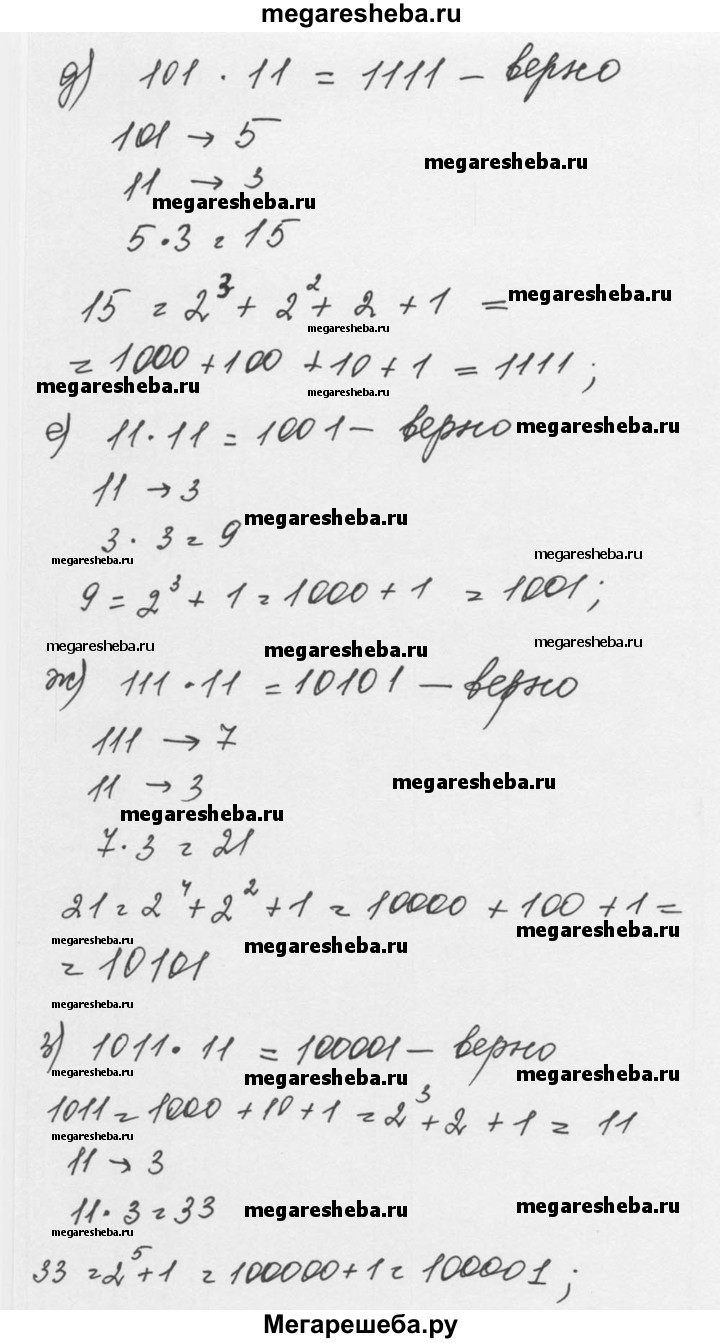 megaresheba.ru
д) 101 · 11 = 1111 – верно
101 → 5
megaresheba.ru
11 → 3
megaresheba.ru
5 · 3 = 15
15 = 2³ + 2² + 2 + 1 =
megaresheba.ru
megaresheba.ru
= 1000 + 100 + 10 + 1 = 1111;
megaresheba.ru
megaresheba.ru
е) 11 · 11 = 1001 – верно
megaresheba.ru
11 → 3
megaresheba.ru
3 · 3 = 9
megaresheba.ru
megaresheba.ru
9 = 2³ + 1 = 1000 + 1 = 1001;
megaresheba.ru
megaresheba.ru
megaresheba.ru
ж) 111 · 11 = 10101 – верно
111 → 7
11 → 3
megaresheba.ru
megaresheba.ru
7 · 3 = 21
21 = 2⁴ + 2² + 1 = 10000 + 100 + 1 =
megaresheba.ru
megaresheba.ru
megaresheba.ru
= 10101
megaresheba.ru
з) 1011 · 11 = 100001 – верно
megaresheba.ru
megaresheba.ru
megaresheba.ru
1011 = 1000 + 10 + 1 = 2³ + 2 + 1 = 11
megaresheba.ru
11 → 3
11 · 3 = 33
megaresheba.ru
megaresheba.ru
megaresheba.ru
33 = 2⁵ + 1 = 100000 + 1 = 100001;
Мегарешеба.ру